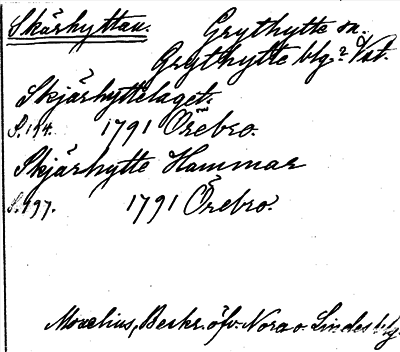 Skärhyttan. Grythytte sn.
Grythytte blg? Vst.
Skjärhyttelaget.
S. 194. 1791 Örebro.
Skjärhytte Hammar
S. 197. 1791 Örebro.
Moxelius, Beskr. öfv. Nora o. Lindes blg.